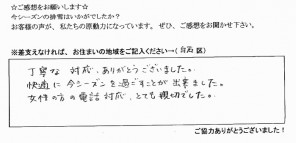 ☆ご感想をお願いします☆
今シーズンの排雪はいかがでしたか？
お客様の声が、私たちの原動力になっています。ぜひ、ご感想をお聞かせ下さい。
※差支えなければ、お住まいの地域をご記入ください→（ 白石 区）
丁寧な対応、ありがとうございました。
快適に今シーズンを過ごすことが出来ました。
女性の方の電話対応、とても親切でした。
ご協力ありがとうございました！